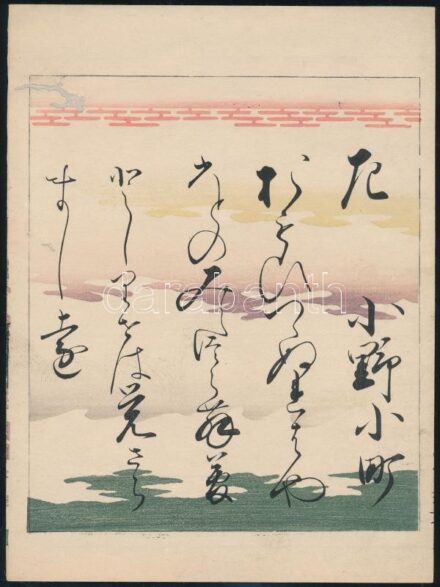 左
小野小町
おもひつゝぬれはや
ひとのみえつらむ夢
としりせは覚さら
ましを
darabanth